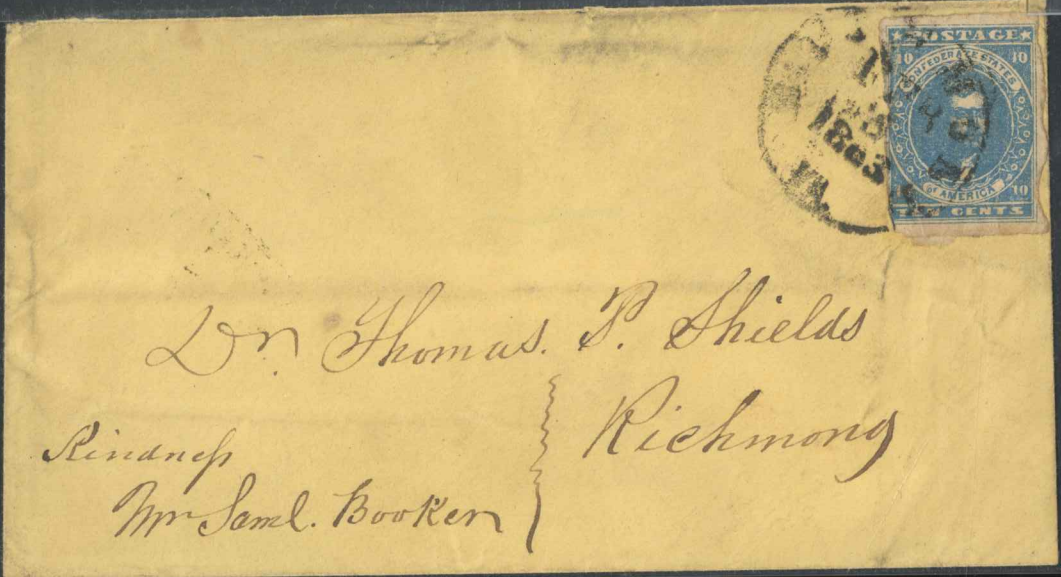 ★ POSTAGE ★
10 10
CONFEDERATE STATES
OF AMERICA
10
TEN CENTS
1863
VA.
Dr. Thomas. P. Shields
Richmond
Kindness
Mr Saml. Booker